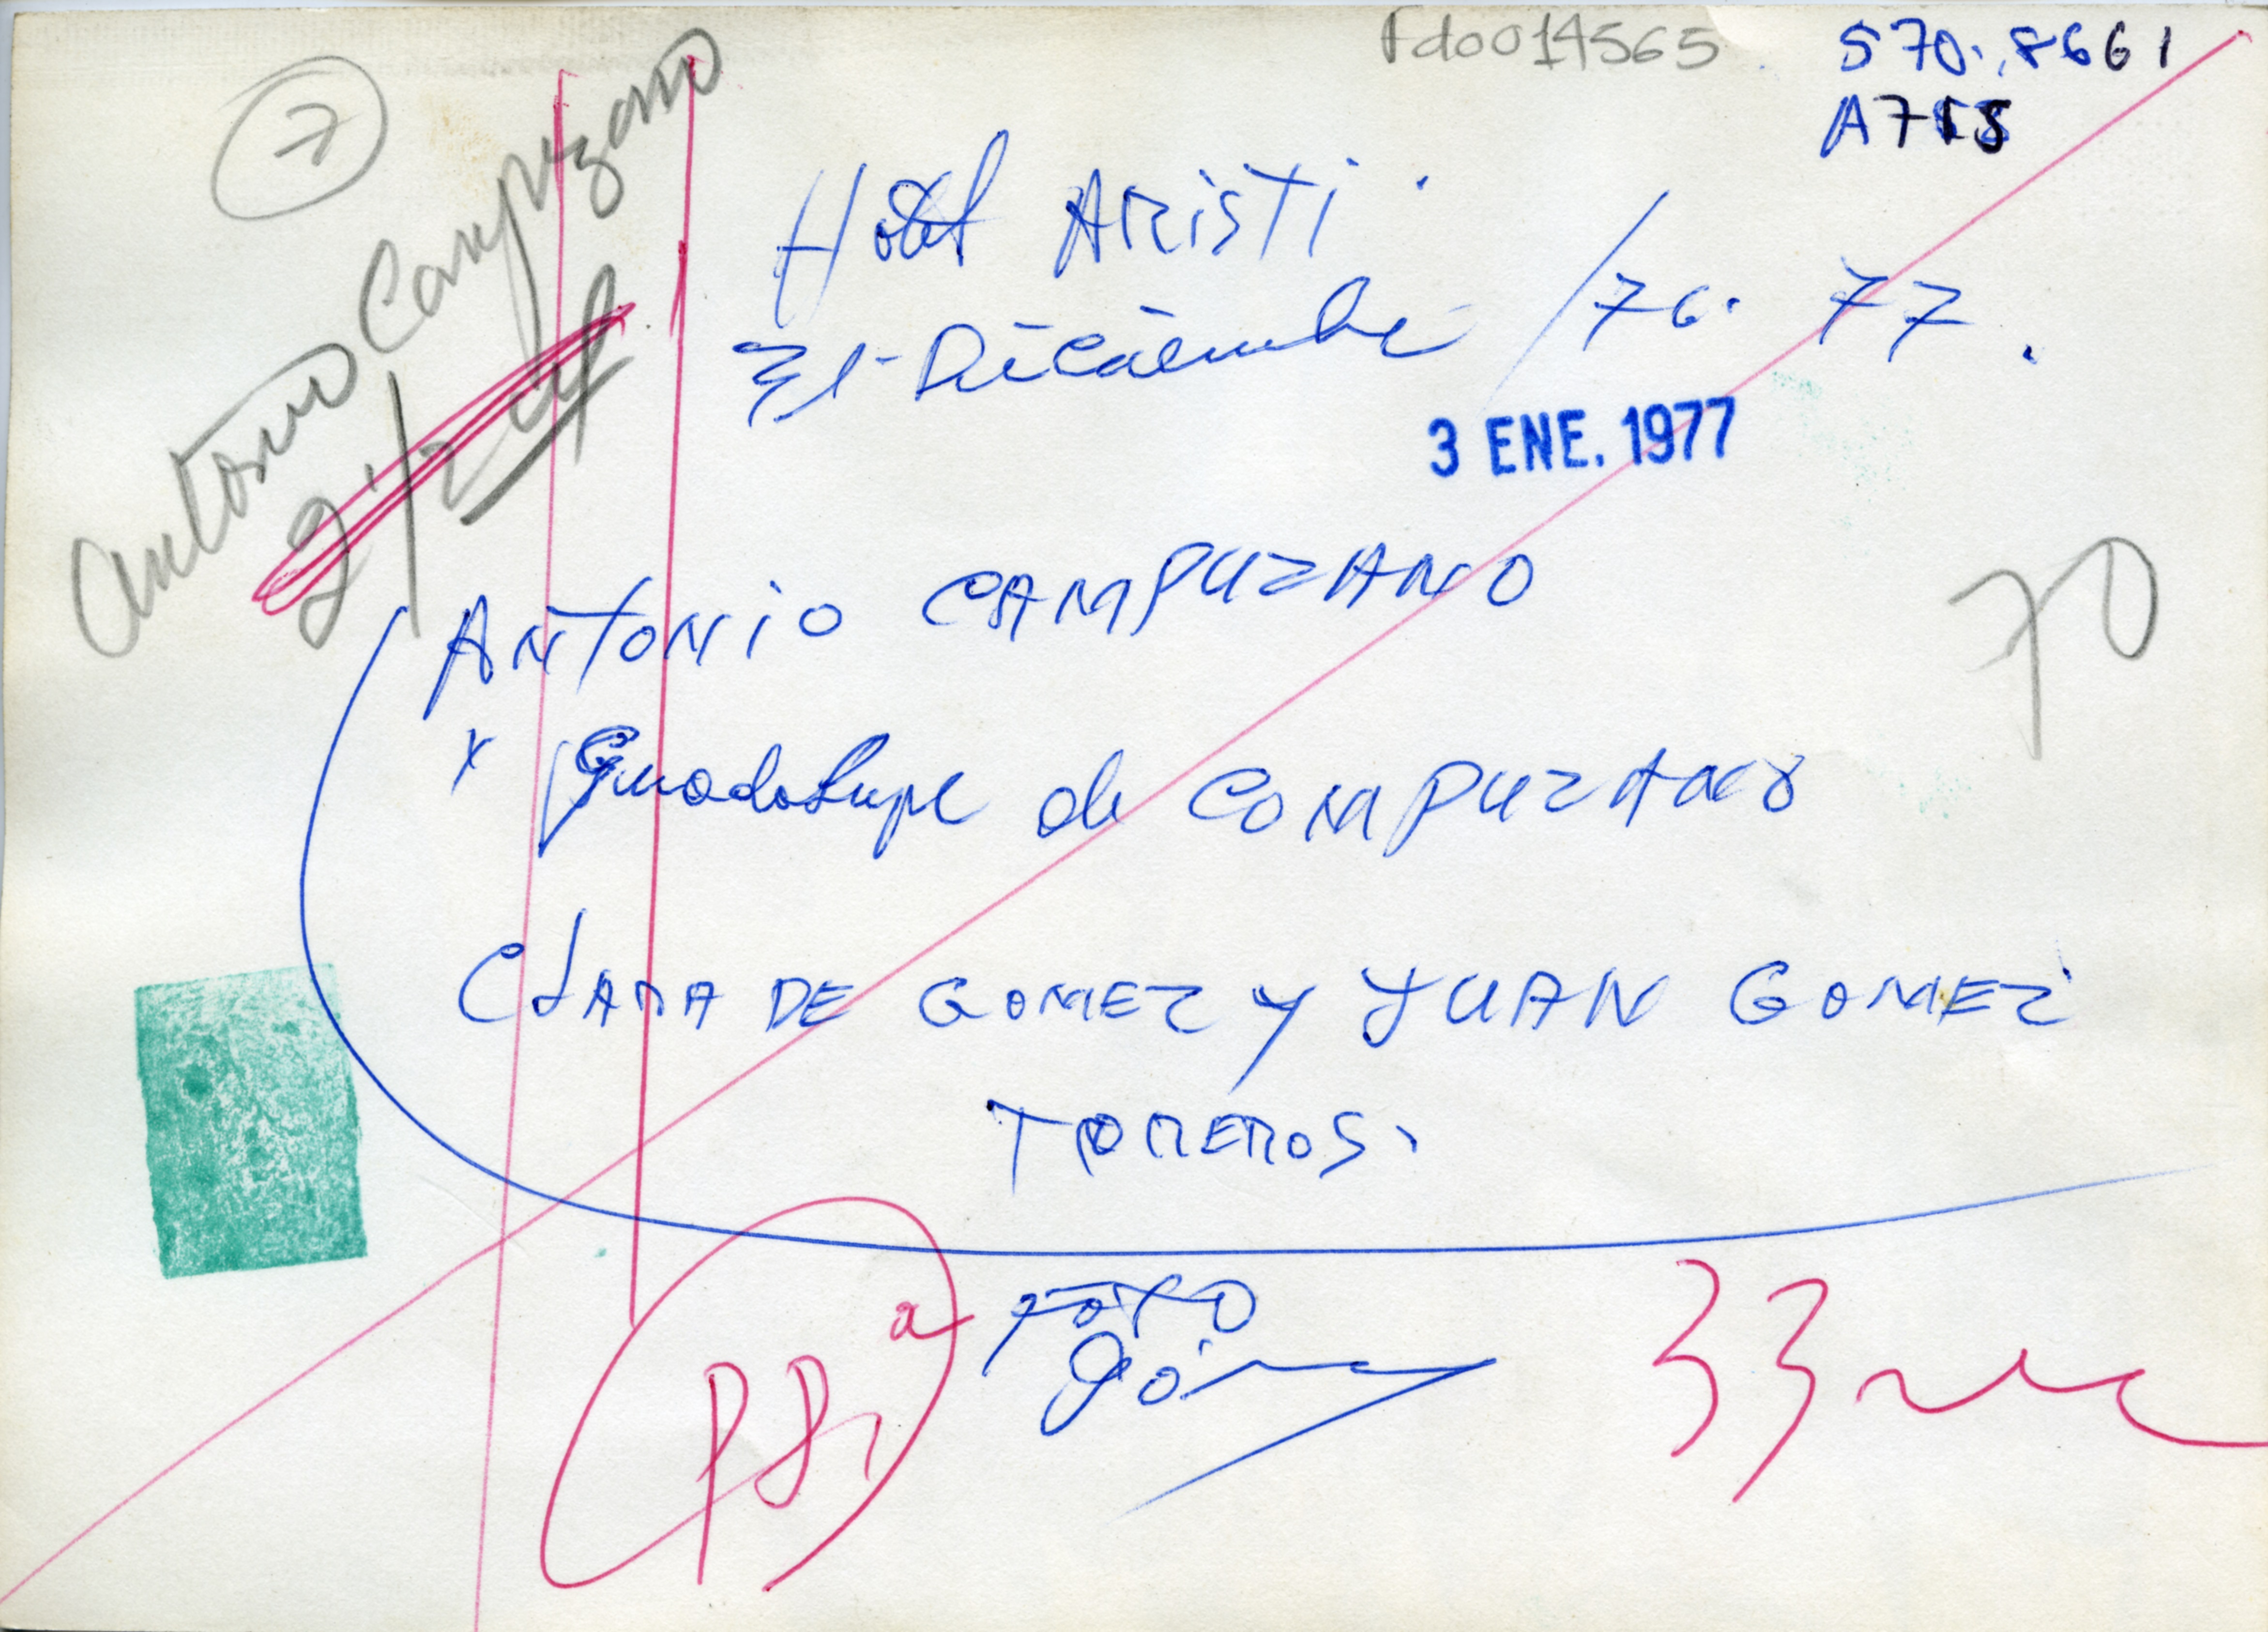 Fdo014565
570.8661
A715
7
Antonio Campuzano
2 1/2
Hotel ARISTI.
31-Diciembre /76. 77.
3 ENE. 1977
70
ANTONIO CAMPUZANO
x Guadalupe de CAMPUZANO
CLARA DE GOMEZ Y JUAN GOMEZ
TOREROS.
FOTO
33